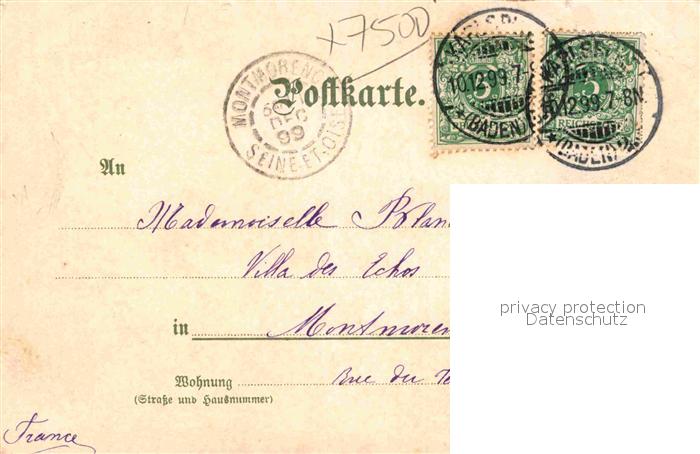 x7500
MONTMORENC
SEINE-ET-OISE
DEC
99
Postkarte.
10.12.99.7-
(BADEN)
12.99.7-8N.
(BADEN)2
REICHS
An
Mademoiselle Blan
Villa des Echos
in Montmoren
Wohnung rue du Te
(Straße und Hausnummer)
France
privacy protection
Datenschutz